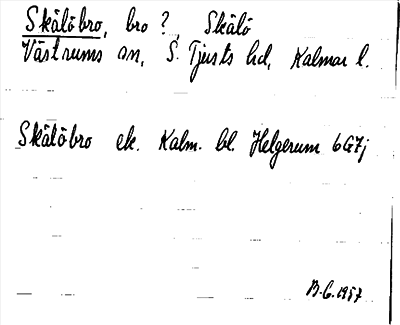 Skälöbro, bro?, Skälö
Västrums sn, S. Tjusts hd, Kalmar l.
Skälöbro ek. Kalm. bl. Helgerum 6G7j
B.G. 1957